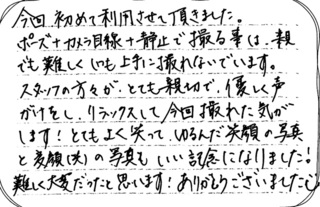 今回、初めて利用させて頂きました。
ポーズ+カメラ目線+静止で撮る事は、親
でも難しくいつも上手に撮れないでいます。
スタッフの方々が、とても親切で、優しく声
がけをし、リラックスして今回撮れた気が
します!とてもよく笑って、ゆるんだ笑顔の写真
と変顔(笑)の写真も いい記念になりました!
難しく大変だったと思います!ありがとうございました